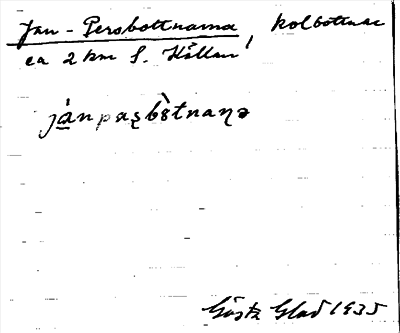 Jan-Persbottnarna, kolbottnar
ca 2 km S. Hållan
jánpaʂbòtnaɳə
Gösta Glad 1935